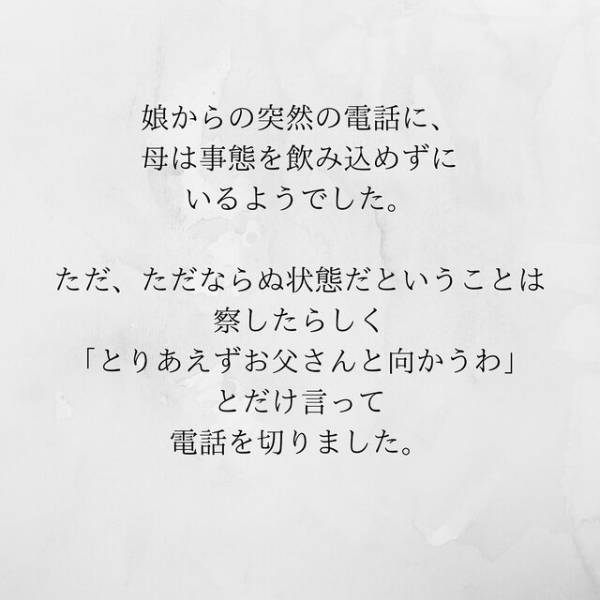 娘からの突然の電話に、
母は事態を飲み込めずに
いるようでした。
ただ、ただならぬ状態だということは
察したらしく
「とりあえずお父さんと向かうわ」
とだけ言って
電話を切りました。